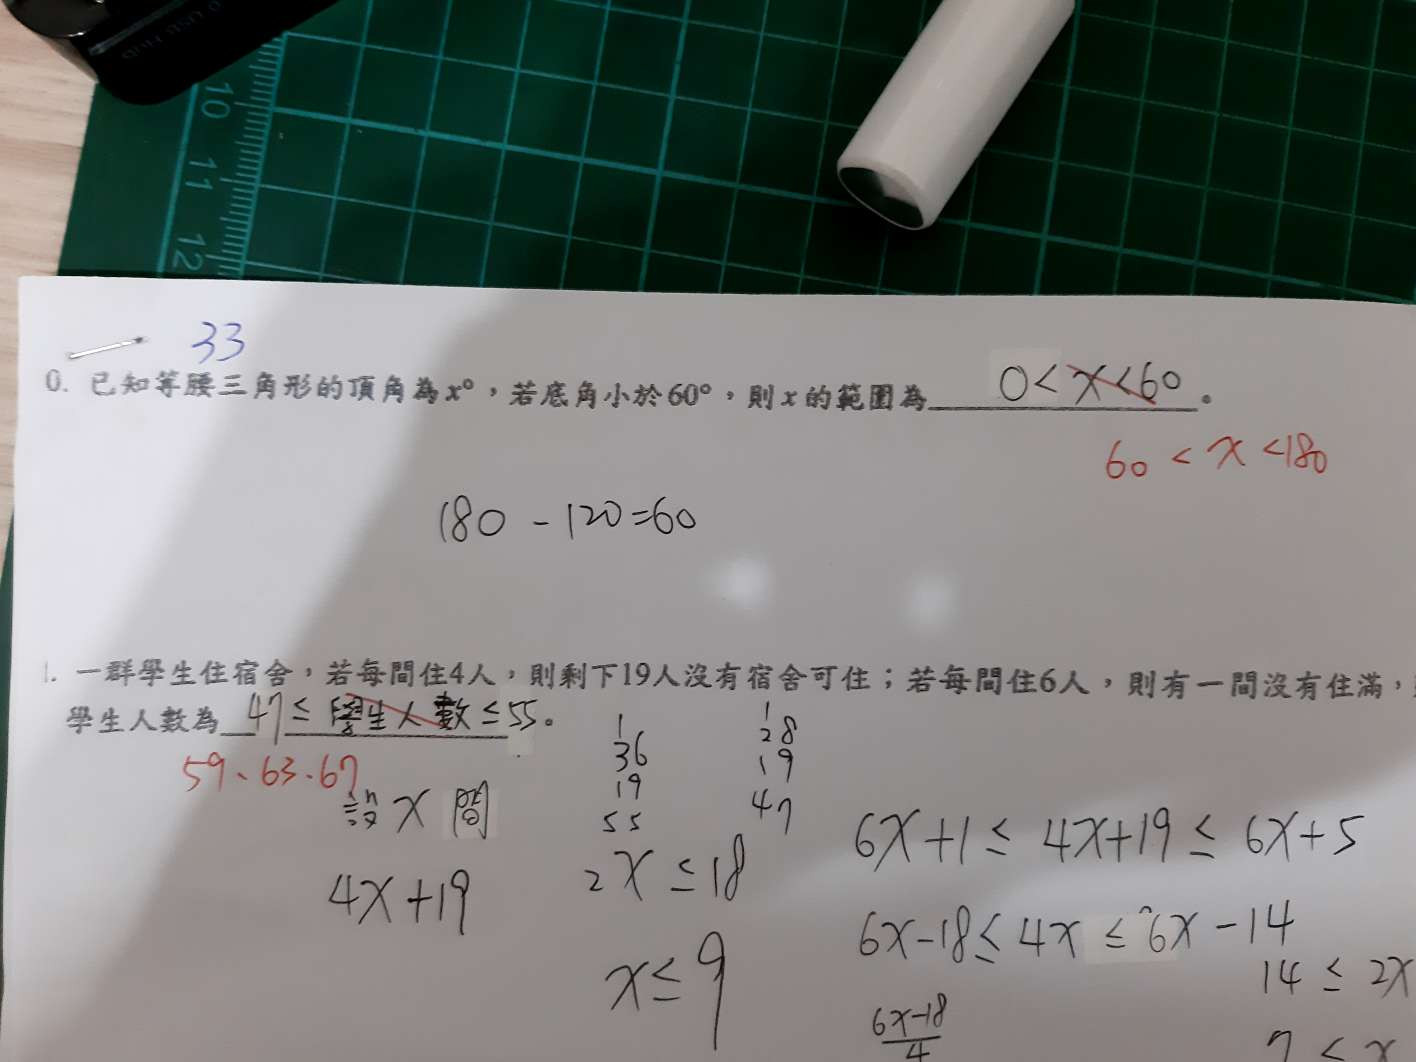 10
11
12
33
0. 已知等腰三角形的頂角為x°，若底角小於60°，則x的範圍為 0<x<60 。
60<x<180
180-120=60
1. 一群學生住宿舍，若每間住4人，則剩下19人沒有宿舍可住；若每間住6人，則有一間沒有住滿，
學生人數為 47≤學生人數≤55。
59、63、67
設x間
4x+19
1
36
19
55
1
28
19
47
2x≤18
x≤9
6x+1≤4x+19≤6x+5
6x-18≤4x≤6x-14
14≤2x
6x-18
4
7≤x